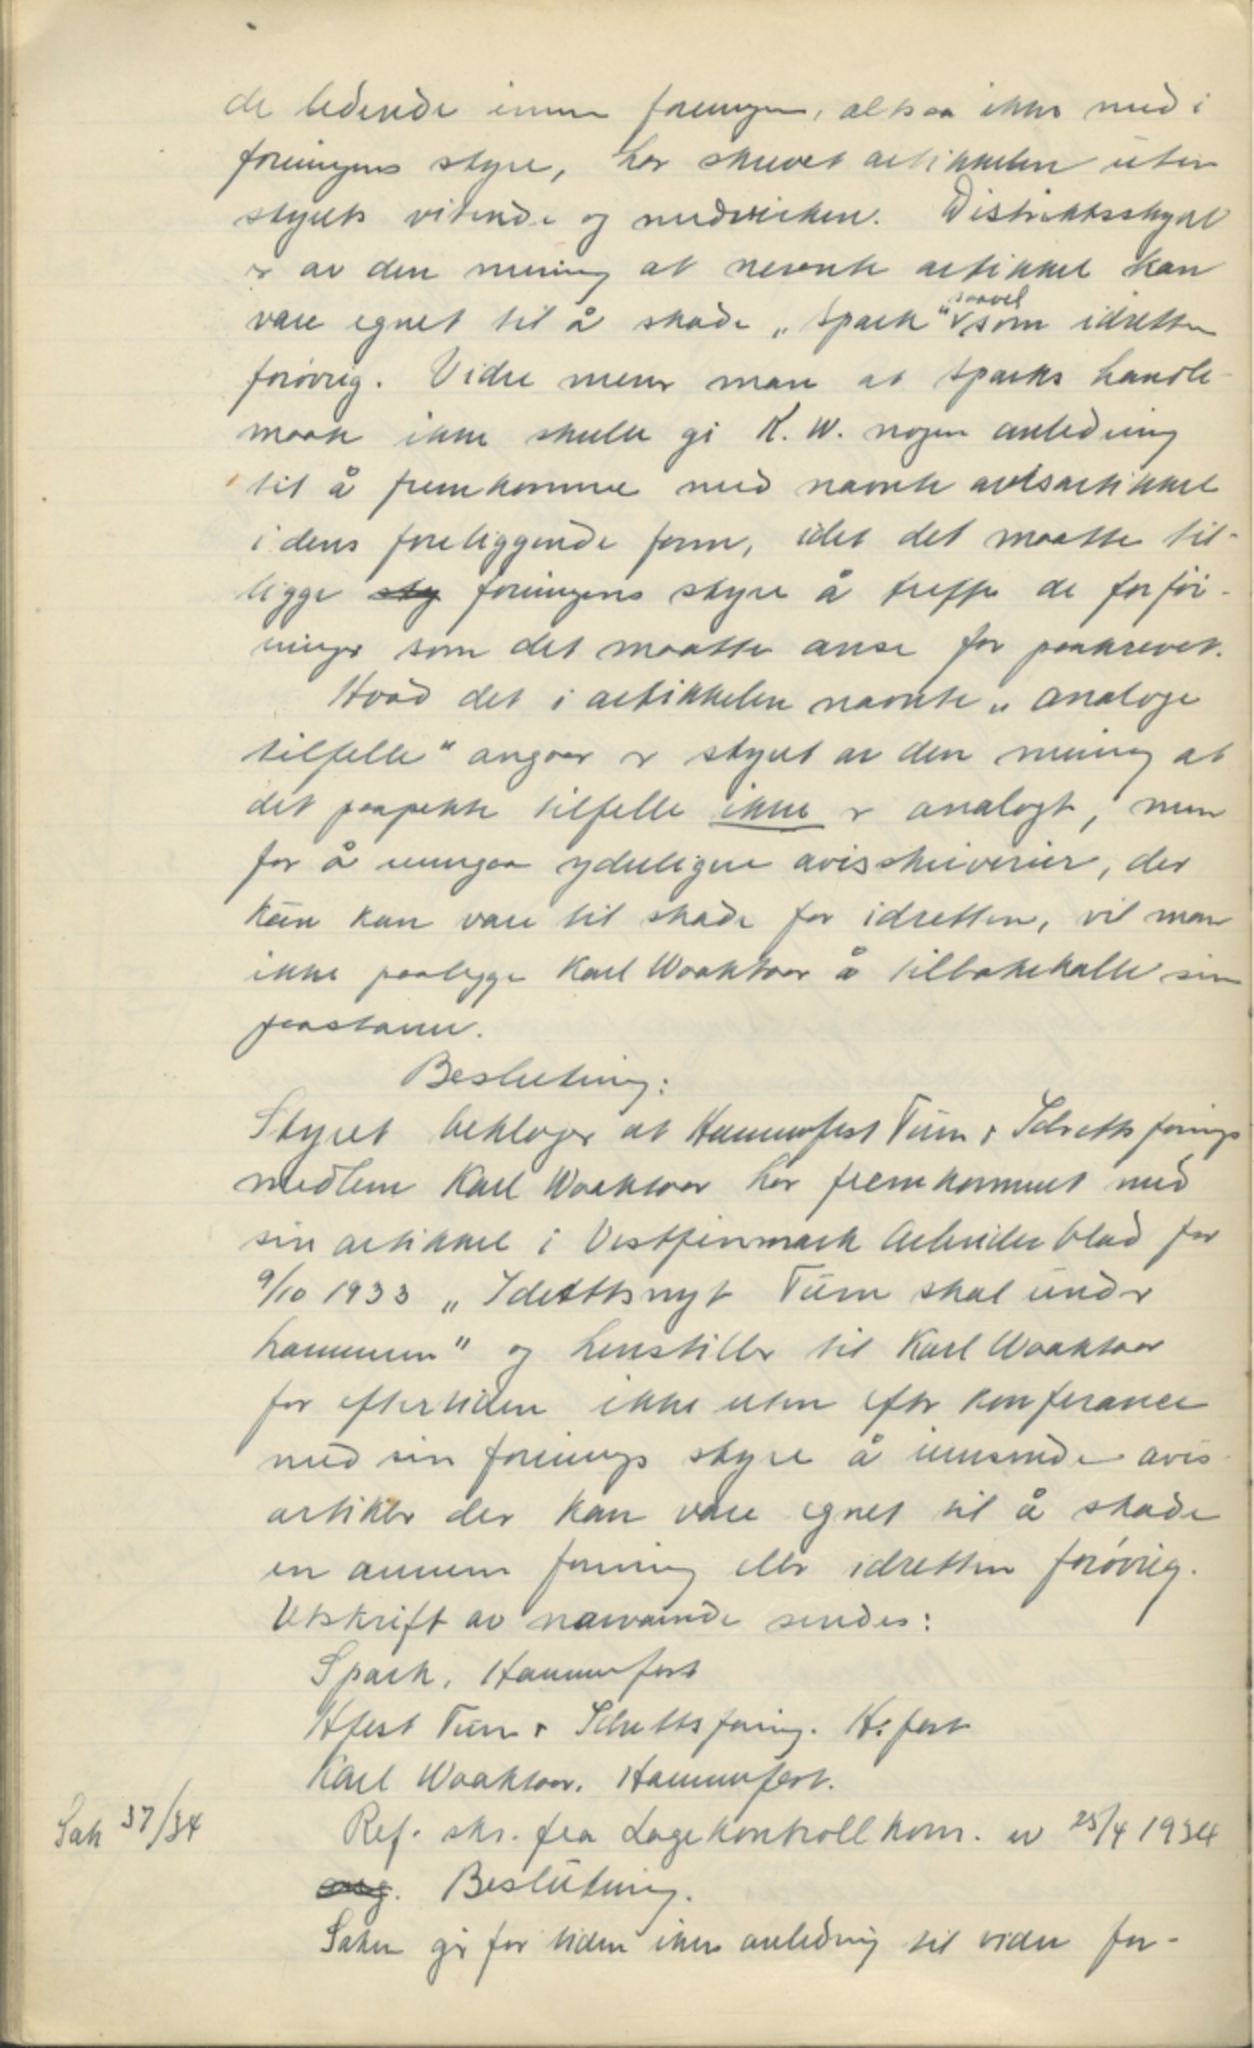 de ledende innen foreningen, altsaa ikke med i
foreningens styre, har skrevet artikkelen uten
styrets vitende og medvirken. Distriktsstyret
er av den mening at nevnte artikkel kan
være egnet til å skade „Spark" saavel som idretten
forøvrig. Vidre mener man at Sparks handle-
maate ikke skulle gi K. W. nogen anledning
til å fremkomme med nævnte avisartikkel
i dens foreliggende form, idet det maatte til-
ligge foreningens styre å treffe de forføi-
ninger som det maatte anse for paakrevet.
Hvad det i artikkelen nævnte „analoge
tilfelle" angaar er styret av den mening at
det paapekte tilfelle ikke er analogt, men
for å unngaa yderligere avisskriverier, der
kun kan være til skade for idretten, vil man
ikke paalegge Karl Waaktaar å tilbakekalle sin
paastann.
Beslutning:
Styret beklager at Hammerfest Turn & Idrettsforenings
medlem Karl Waaktaar har fremkommet med
sin artikkel i Vestfinmark Arbeiderblad for
9/10 1933 „Idrettsnyt Turn skal under
hammeren" og henstiller til Karl Waaktaar
for eftertiden ikke uten efter konferance
med sin forenings styre å innsende avis-
artikler der kan være egnet til å skade
en annen forening eller idretten forøvrig.
Utskrift av nærværende sendes:
Spark, Hammerfest
Hfest Turn & Idrettsforening. H.fest
Karl Waaktaar. Hammerfest.
Sak 37/34 Ref. skr. fra Lagekontrollkom. av 25/4 1934
ang. Beslutning.
Saken gir for tiden ikke anledning til videre for-